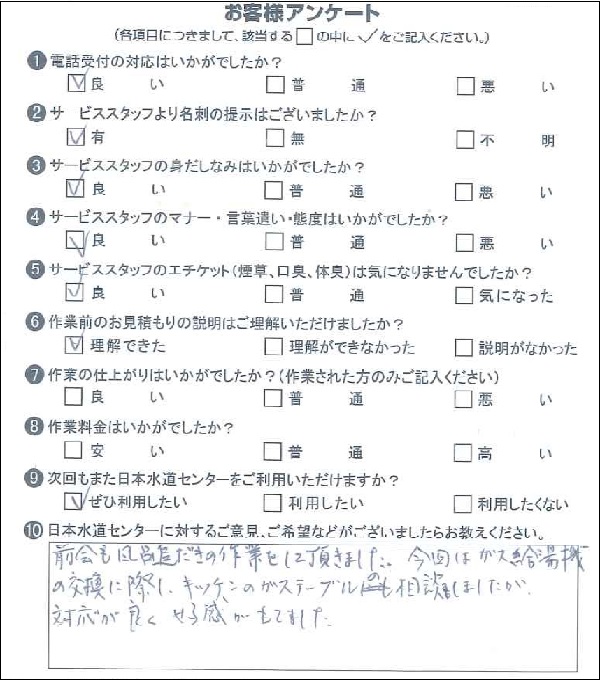 お客様アンケート
(各項目につきまして、該当する□の中に✓をご記入ください。)
❶ 電話受付の対応はいかがでしたか?
☑ 良い □ 普通 □ 悪い
❷ サービススタッフより名刺の提示はございましたか?
☑ 有 □ 無 □ 不明
❸ サービススタッフの身だしなみはいかがでしたか?
☑ 良い □ 普通 □ 悪い
❹ サービススタッフのマナー・言葉遣い・態度はいかがでしたか?
☑ 良い □ 普通 □ 悪い
❺ サービススタッフのエチケット(煙草、口臭、体臭)は気になりませんでしたか?
☑ 良い □ 普通 □ 気になった
❻ 作業前のお見積もりの説明はご理解いただけましたか?
☑ 理解できた □ 理解ができなかった □ 説明がなかった
❼ 作業の仕上がりはいかがでしたか?(作業された方のみご記入ください)
□ 良い □ 普通 □ 悪い
❽ 作業料金はいかがでしたか?
□ 安い □ 普通 □ 高い
❾ 次回もまた日本水道センターをご利用いただけますか?
☑ ぜひ利用したい □ 利用したい □ 利用したくない
❿ 日本水道センターに対するご意見、ご希望などがございましたらお教えください。
前会も風呂追だきの作業をして頂きました。今回はガス給湯機
の交換に際し、キッチンのガステーブルのも相談しましたが、
対応が良く 感がもてました。